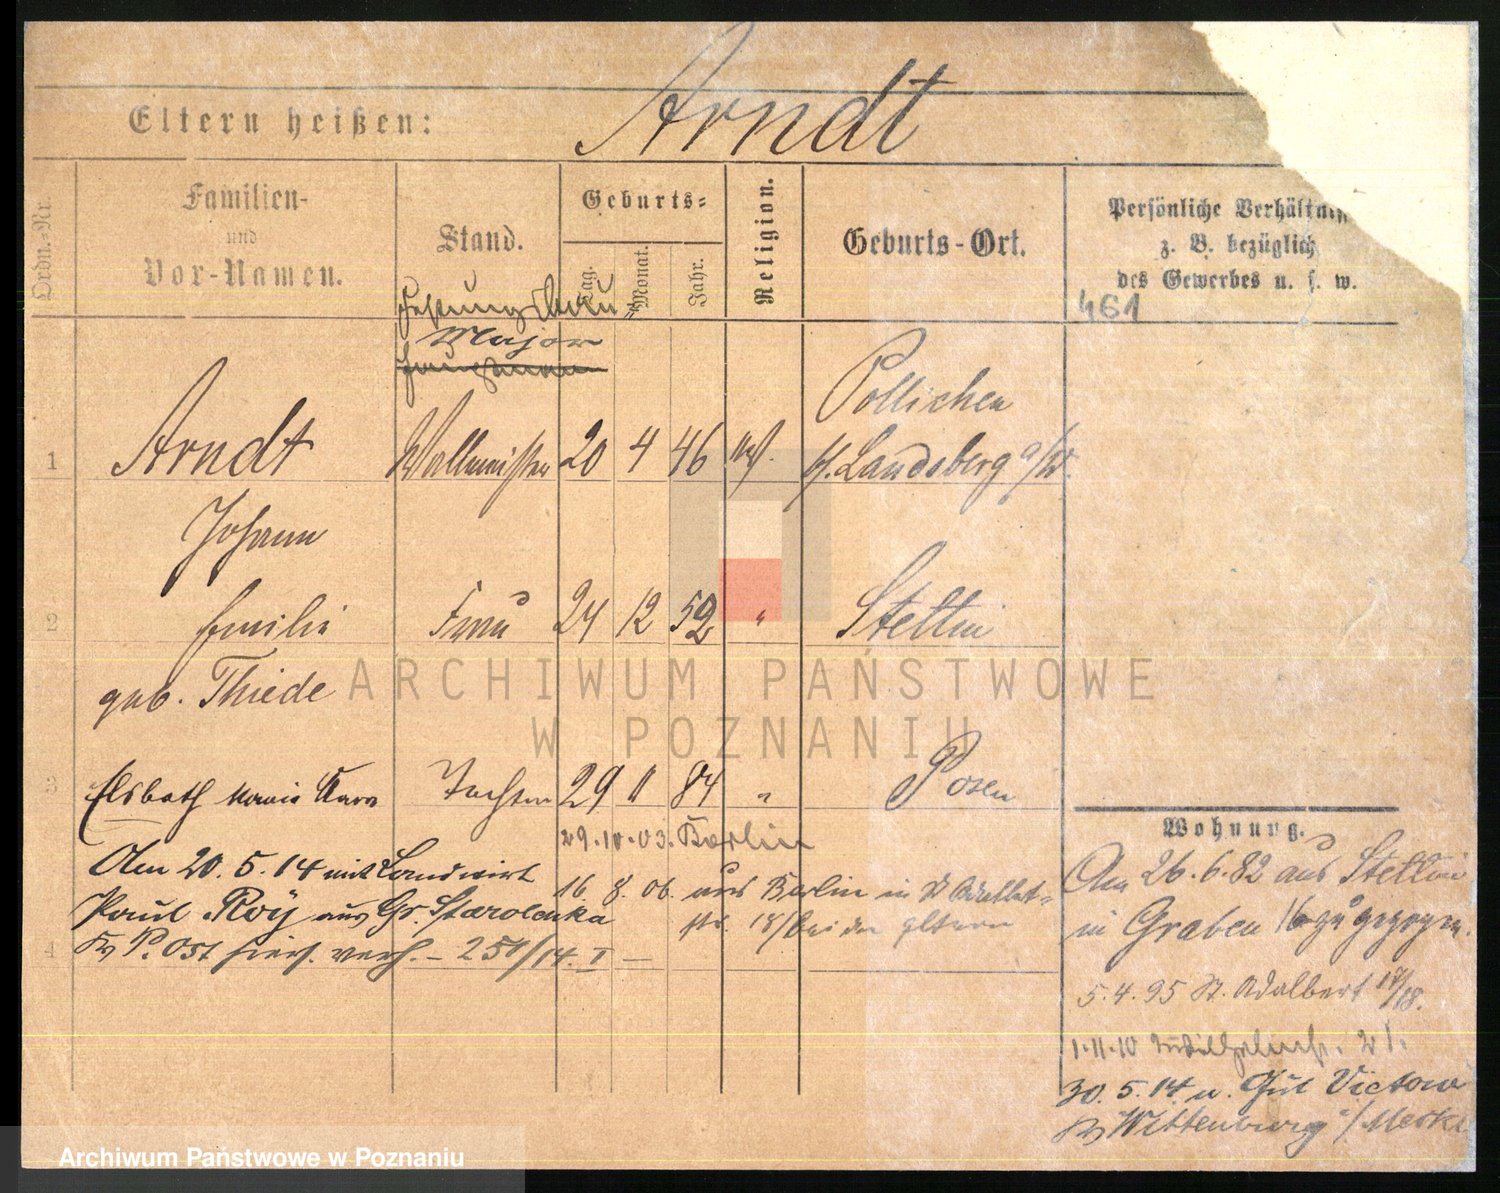 Eltern heißen: Arndt
Ordn.-Nr.
Familien-
und
Vor-Namen.
Stand.
Geburts-
Tag.
Monat.
Jahr.
Religion.
Geburts-Ort.
Persönliche Verhältn
z. B. bezüglich
des Gewerbes u. s. w.
461
Festungsbau
Major
Hauptmann
1 Arndt Wallmeister 20 4 46 Pollichen
bei Landsberg a/W.
Johann
2 Emilie Frau 24 12 52 " Stettin
geb. Thiede
3 Elsbeth Marie Clara Tochter 29 11 84 " Posen
29.10.03. Berlin
Am 20.5.14 mit Landwirt
Paul Roÿ aus Gr. Starolenka
Kr P. Ost hier verh. - 251/14. I -
4
16. 8. 06. aus Berlin in St Adalbert-
str. 18/ bei den Eltern
Wohnung.
Am 26.6.82 aus Stettin
in Graben 16 zugezogen.
5.4.95 St. Adalbert 17/18.
1.11.10 21.
30.5.14 n. Gut Victow
Kr Wittenburg i/Meckl
ARCHIWUM PAŃSTWOWE
W POZNANIU
Archiwum Państwowe w Poznaniu